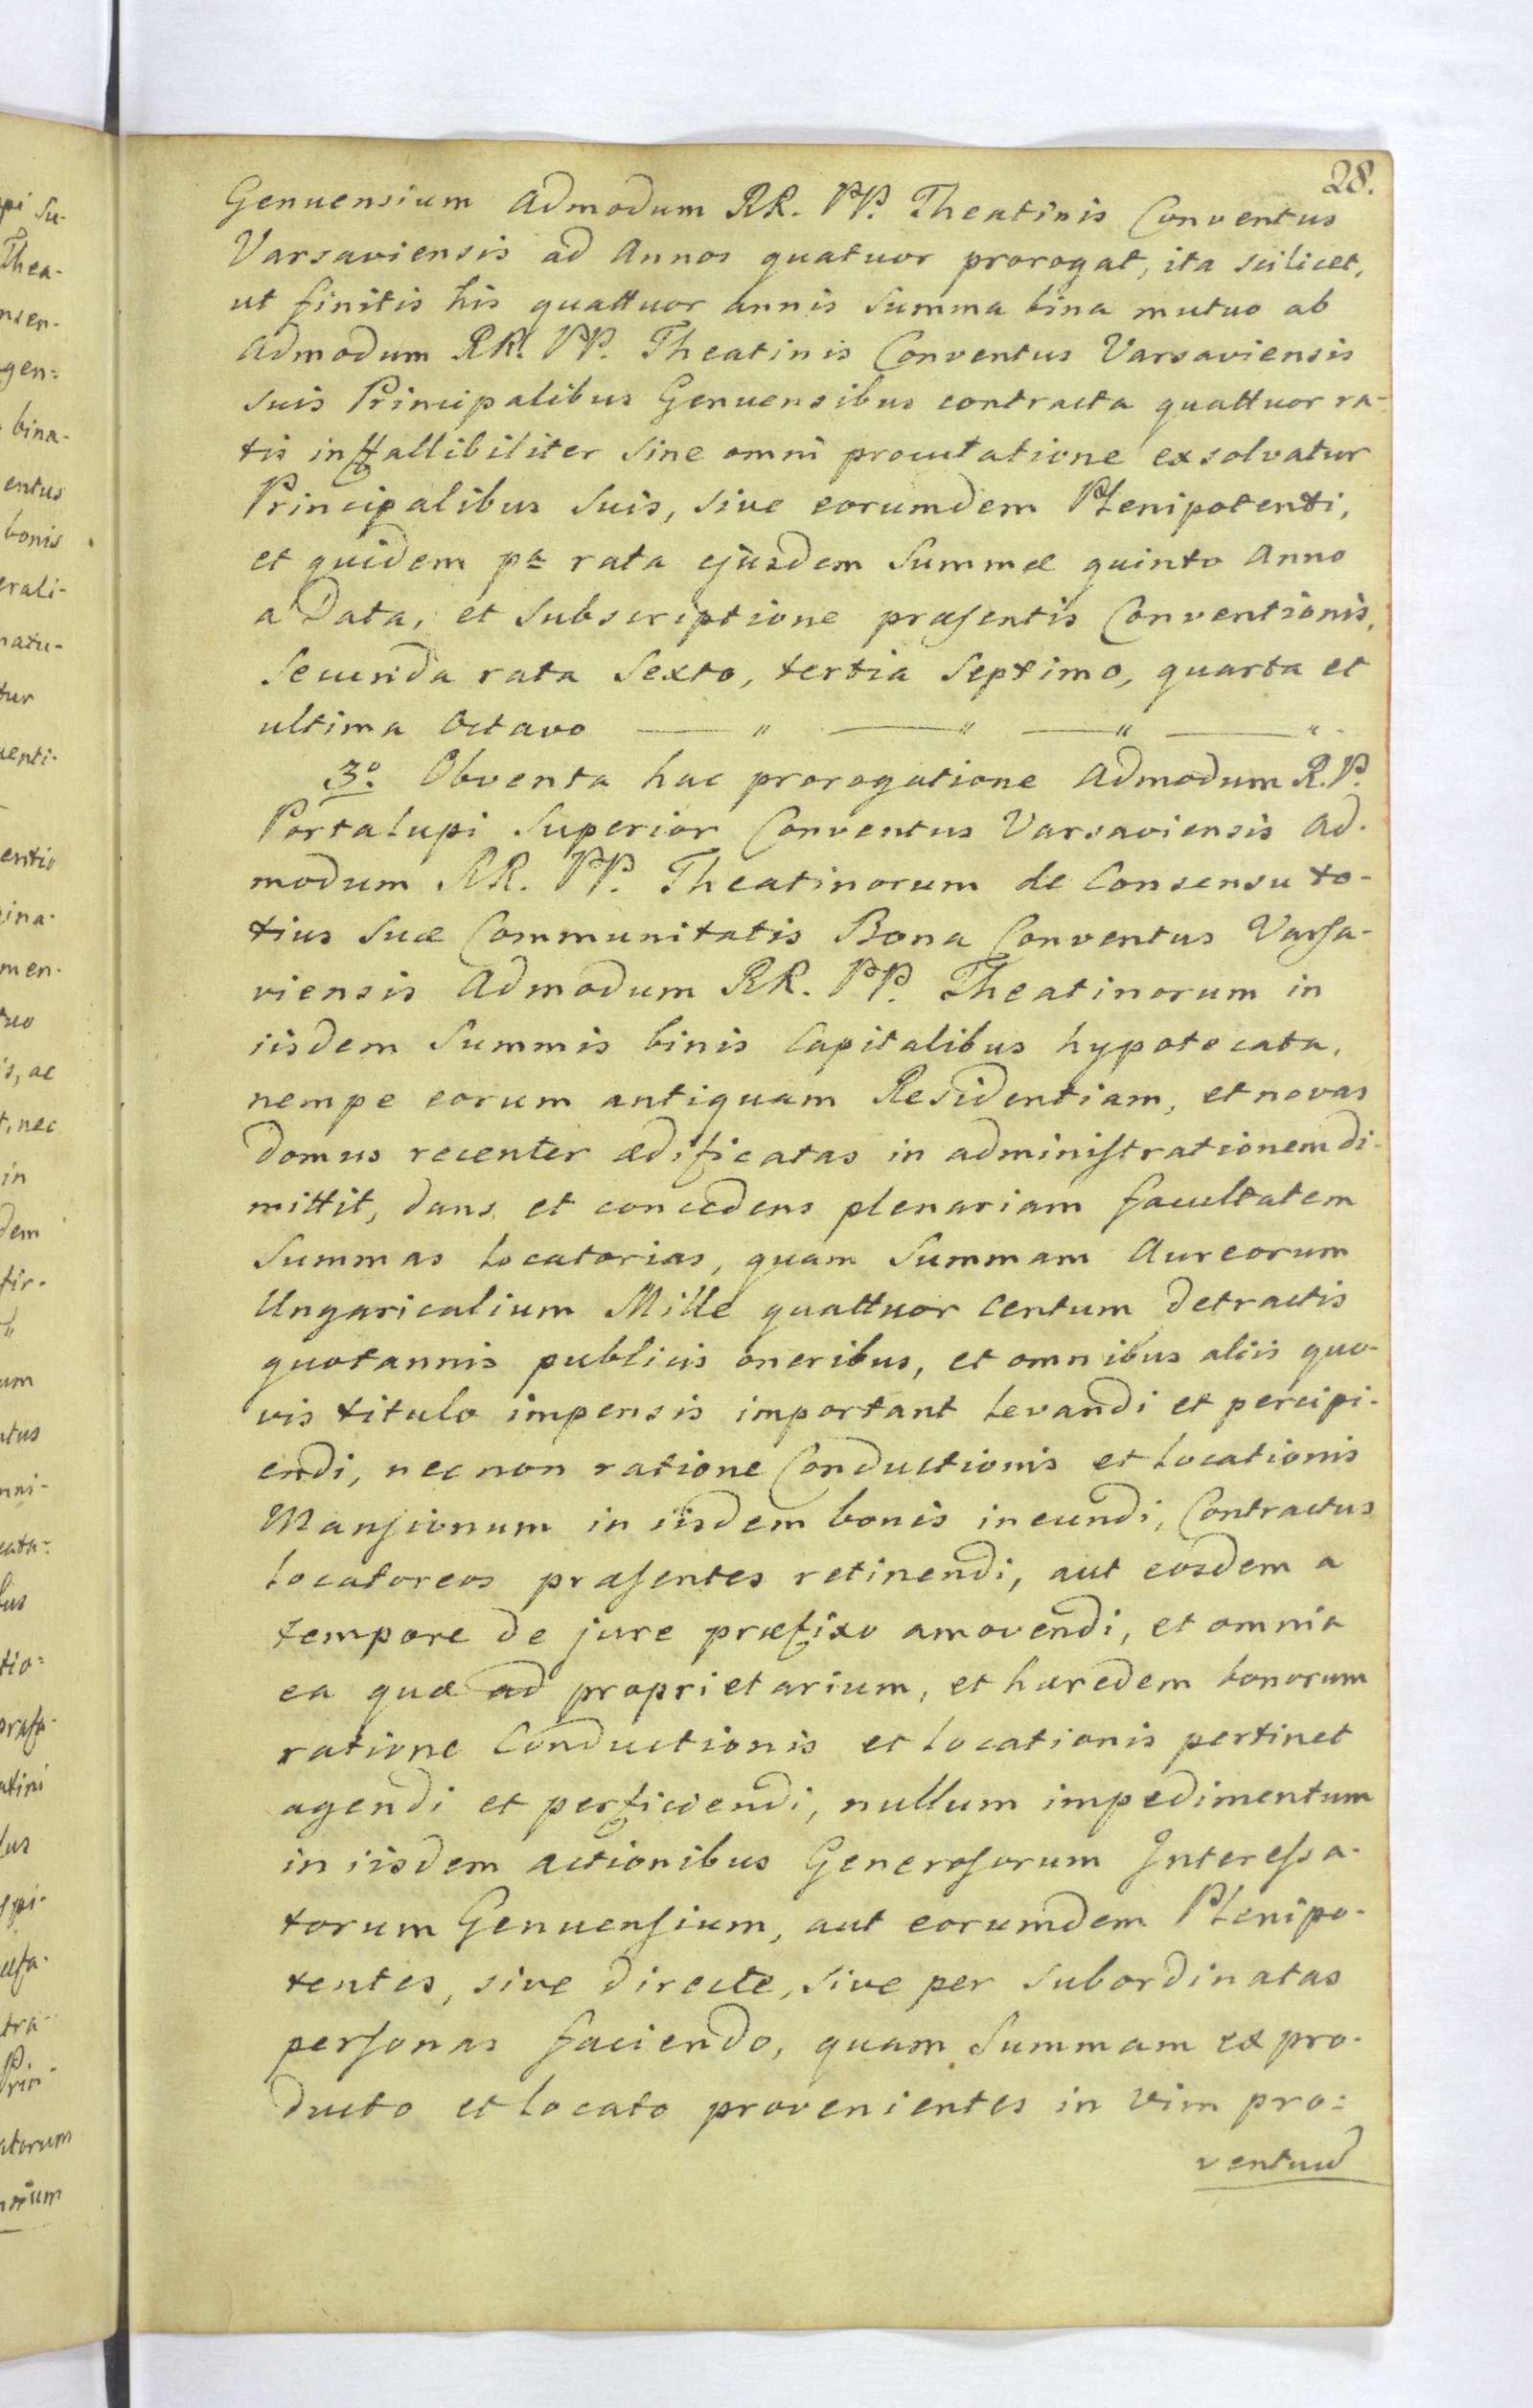 28.
Genuensium Admodum RR. PP. Theatinis Conventus
Varsaviensis ad Annos quatuor prorogat, ita scilicet,
ut finitis his quattuor annis Summa bina mutuo ab
Admodum RR. PP. Theatinis Conventus Varsaviensis
suis Principalibus Genuensibus contracta quattuor ra-
tis inffallibiliter sine omni procutatione exsolvatur
Principalibus Suis, sive eorumdem Plenipotenti,
et quidem pa rata ejusdem Summæ quinto Anno
a Data, et Subscriptione præsentis Conventionis,
Secunda rata Sexto, tertia Septimo, quarta et
ultima Octavo — " — " — " — "
3º Obventa hac prorogatione Admodum R.P.
Portalupi Superior Conventus Varsaviensis Ad-
modum RR. PP. Theatinorum de Consensu to-
tius Suæ Communitatis Bona Conventus Varsa-
viensis Admodum RR. PP. Theatinorum in
iisdem Summis binis Capitalibus hypotecata,
nempe eorum antiquam Residentiam, et novas
domus recenter ædificatas in administrationem di-
mittit, dans et concedens plenariam facultatem
Summas locatorias, quam Summam Aureorum
Ungaricalium Mille quattuor Centum detractis
quotannis publicis oneribus, et omnibus aliis quo-
vis titulo impensis important levandi et percipi-
endi, nec non ratione Conductionis et Locationis
Mansionum in iisdem bonis ineundi, Contractus
locatoreos præsentes retinendi, aut eosdem a
tempore de jure præfixo amovendi, et omnia
ea quæ ad proprietarium, et hæredem bonorum
ratione Conductionis et locationis pertinet
agendi et perficiendi, nullum impedimentum
in iisdem actionibus Generosorum Interessa-
torum Genuensium, aut eorumdem Plenipo-
tentes, sive directe, sive per subordinatas
personas faciendo, quam Summam ex pro-
ducto et locato provenientes in vim pro=
ventuum